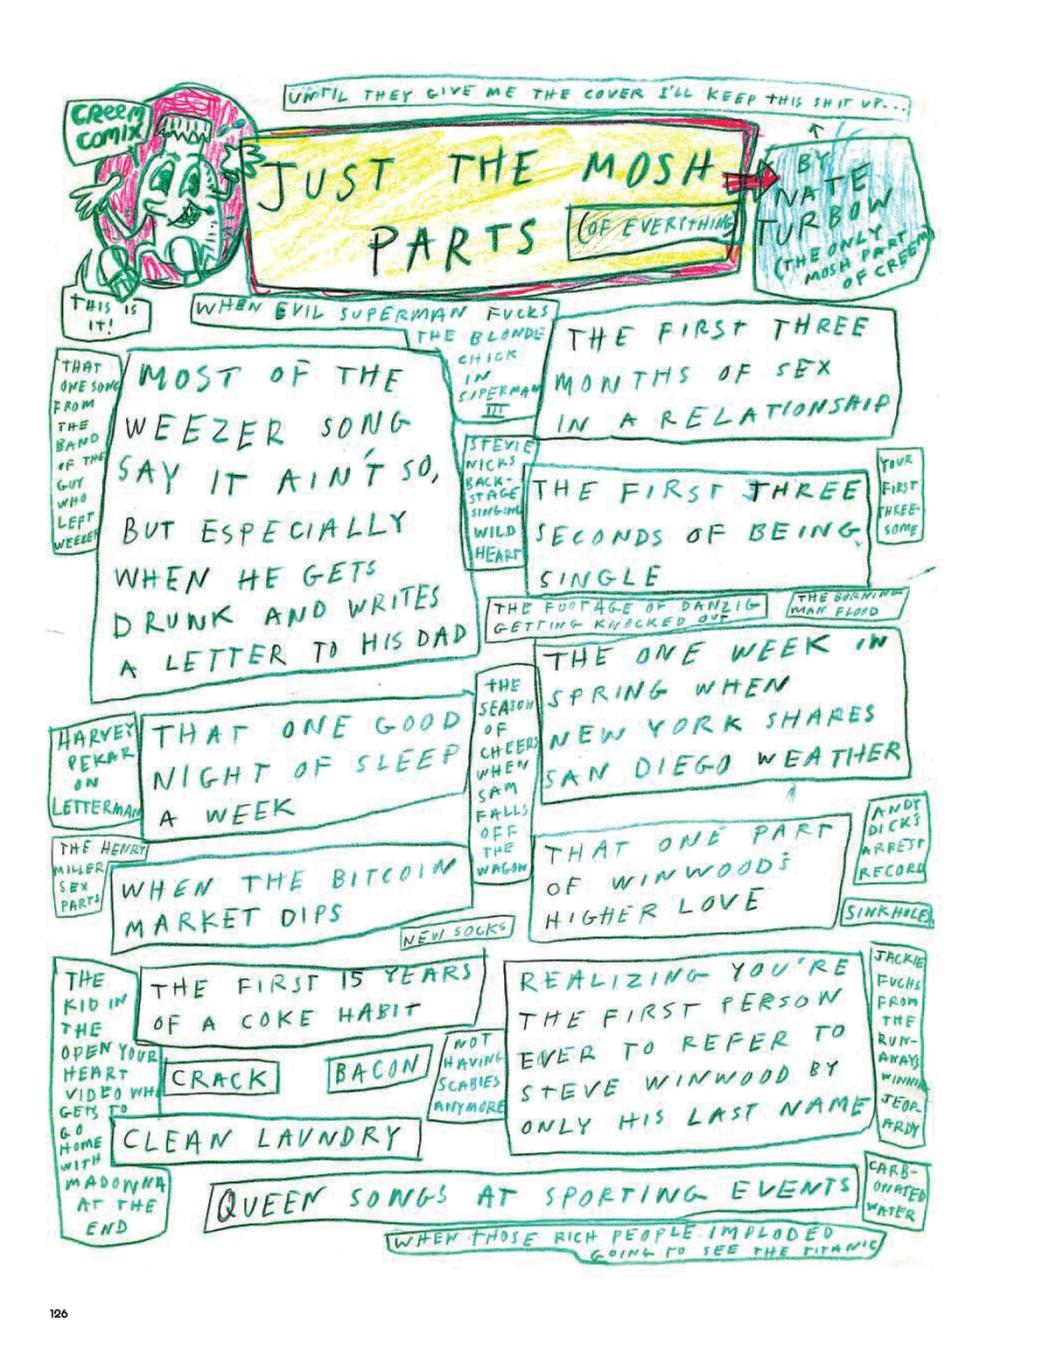 UNTIL THEY GIVE ME THE COVER I'LL KEEP THIS SHIT UP...
CREEM
COMIX
JUST THE MOSH
PARTS
(OF EVERYTHING)
BY
NATE
TURBOW
(THE ONLY
MOSH PART
OF CREEM)
THIS IS
IT!
WHEN EVIL SUPERMAN FUCKS
THE BLONDE
CHICK
IN
SUPERMAN
III
THE FIRST THREE
MONTHS OF SEX
IN A RELATIONSHIP
THAT
ONE SONG
FROM
THE
BAND
OF THE
GUY
WHO
LEFT
WEEZER
MOST OF THE
WEEZER SONG
SAY IT AIN'T SO,
BUT ESPECIALLY
WHEN HE GETS
DRUNK AND WRITES
A LETTER TO HIS DAD
STEVIE
NICKS
BACK-
STAGE
SINGING
WILD
HEART
THE FIRST THREE
SECONDS OF BEING
SINGLE
YOUR
FIRST
THREE-
SOME
THE FOOTAGE OF DANZIG
GETTING KNOCKED OUT
THE BURNING
MAN FLOOD
THE ONE WEEK IN
SPRING WHEN
NEW YORK SHARES
SAN DIEGO WEATHER
HARVEY
PEKAR
ON
LETTERMAN
THAT ONE GOOD
NIGHT OF SLEEP
A WEEK
THE
SEASON
OF
CHEERS
WHEN
SAM
FALLS
OFF
THE
WAGON
THE HENRY
MILLER
SEX
PARTS
WHEN THE BITCOIN
MARKET DIPS
THAT ONE PART
OF WINWOOD'S
HIGHER LOVE
ANDY
DICK'S
ARREST
RECORD
SINKHOLES
NEW SOCKS
THE
KID IN
THE
OPEN YOUR
HEART
VIDEO WHO
GETS TO
GO
HOME
WITH
MADONNA
AT THE
END
THE FIRST 15 YEARS
OF A COKE HABIT
CRACK
BACON
NOT
HAVING
SCABIES
ANYMORE
REALIZING YOU'RE
THE FIRST PERSON
EVER TO REFER TO
STEVE WINWOOD BY
ONLY HIS LAST NAME
JACKIE
FUCHS
FROM
THE
RUN-
AWAYS
WINNING
JEOP-
ARDY
CLEAN LAUNDRY
QUEEN SONGS AT SPORTING EVENTS
CARB-
ONATED
WATER
WHEN THOSE RICH PEOPLE IMPLODED
GOING TO SEE THE TITANIC
126